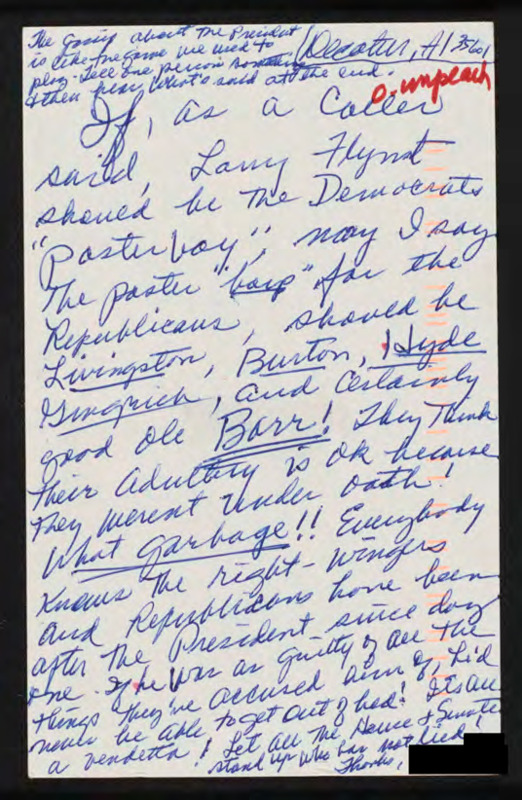 The gossip about the President
is like the game we used to
play - tell one person something
& then hear what's said at the end.
Decatur, Al 35601
O-impeach
If, as a Caller
said, Larry Flynt
should be the Democrats
"Poster boy", may I say
the poster "boys" for the
Republicans, should be
Livingston, Burton, Hyde
Gingrich, and certainly
good ole Barr! They think
their adultery is ok because
they weren't under oath!
What garbage!! Everybody
knows the right-wingers
and Republicans have been
after the President since day
one. If he was as guilty of all the
things they've accused him of, he'd
never be able to get out of bed! It's all
a vendetta! Let all the House & Senate
stand up who has not lied!
Thanks,